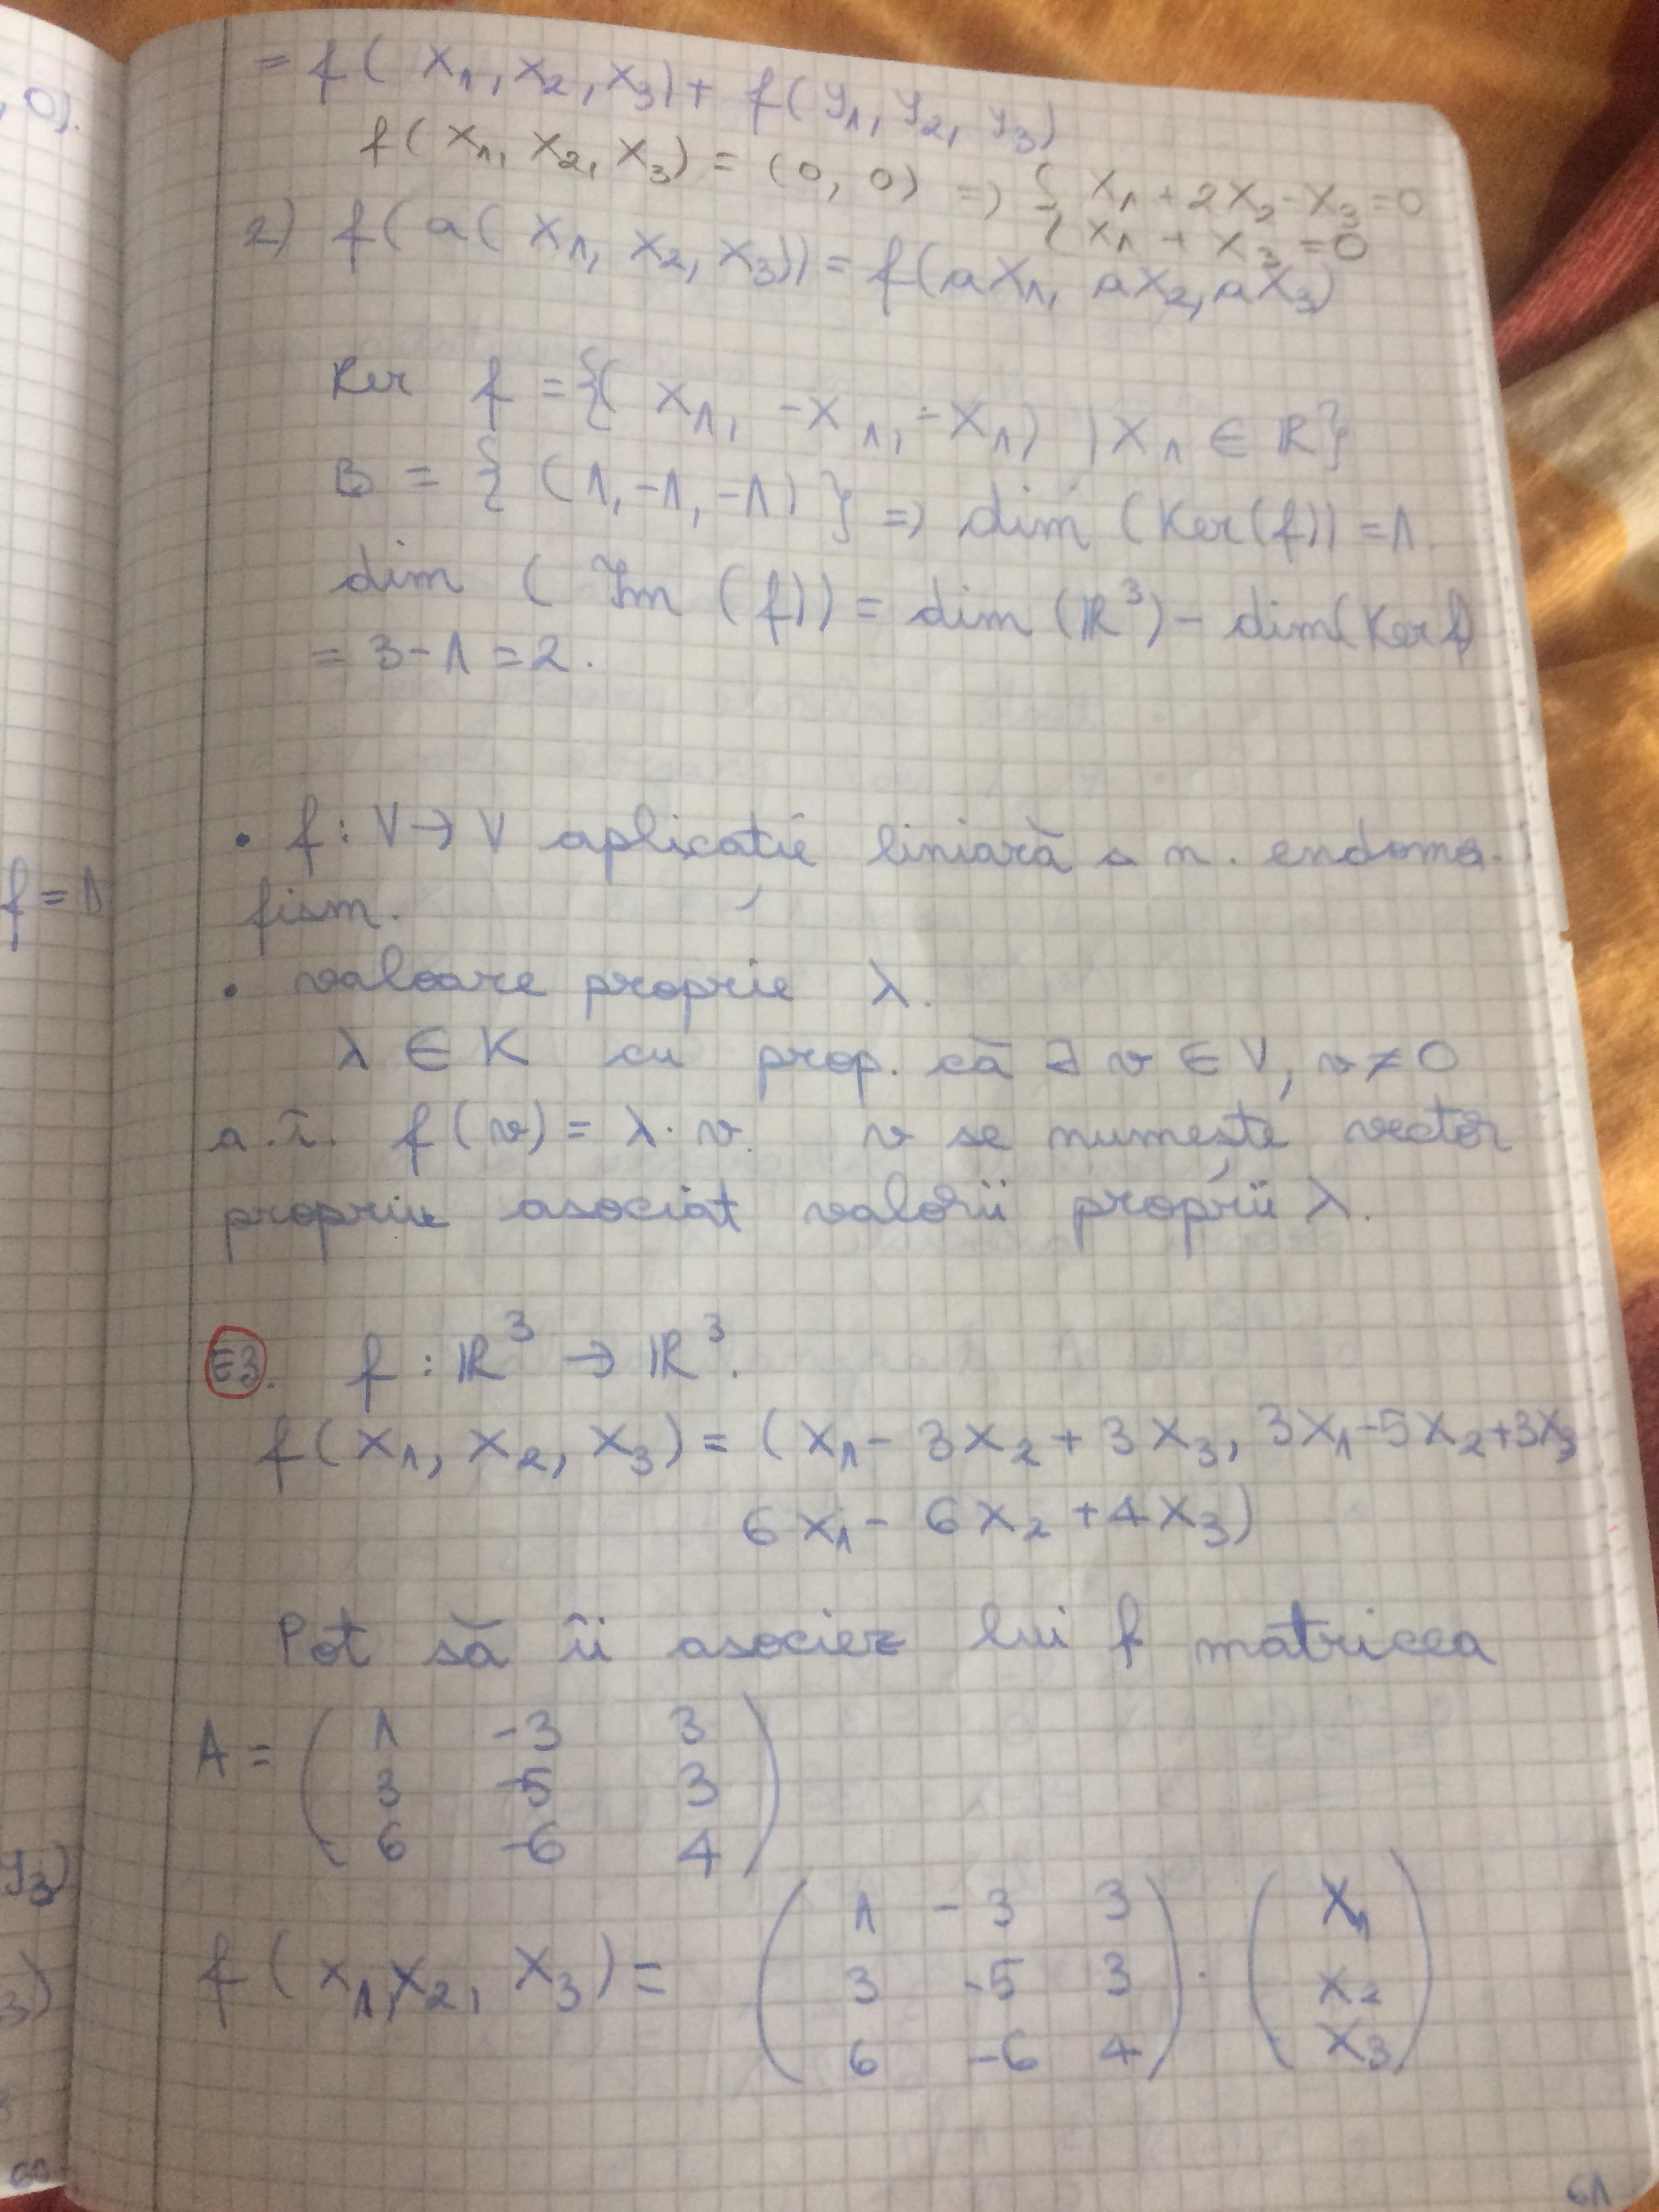 = f( x₁, x₂, x₃) + f( y₁, y₂, y₃)
f( x₁, x₂, x₃) = (0, 0) => { x₁ + 2x₂ - x₃ = 0
x₁ + x₃ = 0
2) f(a( x₁, x₂, x₃)) = f(ax₁, ax₂, ax₃)
Ker f = {( x₁, -x₁, -x₁) | x₁ ∈ ℝ}
B = { (1, -1, -1) } => dim (Ker(f)) = 1.
dim ( Im (f)) = dim (ℝ³) - dim(Ker f)
= 3 - 1 = 2.
• f : V → V aplicație liniară s n. endomo-
fism.
• valoare proprie λ.
λ ∈ K cu prop. că ∃ v ∈ V, v ≠ 0
a.î. f(v) = λ · v. v se numește vector
propriu asociat valorii proprii λ.
E3. f : ℝ³ → ℝ³.
f( x₁, x₂, x₃) = ( x₁ - 3x₂ + 3x₃, 3x₁ - 5x₂ + 3x₃
6x₁ - 6x₂ + 4x₃)
Pot să îi asociez lui f matricea
A = ( 1 -3 3
3 -5 3
6 -6 4 )
f ( x₁, x₂, x₃) = ( 1 -3 3 ) · ( x₁
3 -5 3 x₂
6 -6 4 x₃ )
61
, 0).
f = 1
y₃)
3)
60